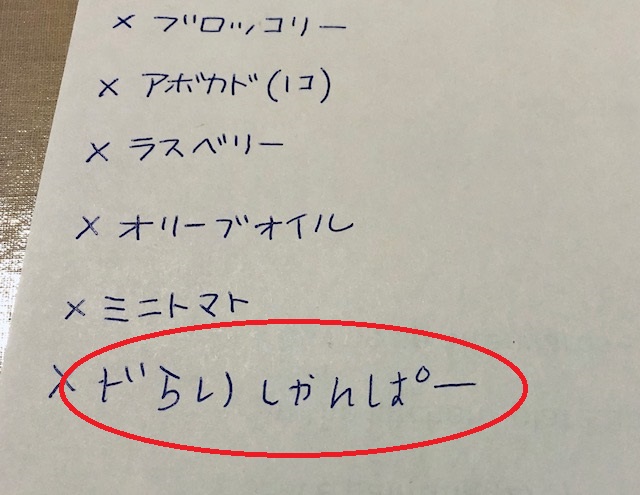 × ブロッコリー
× アボカド(1コ)
× ラズベリー
× オリーブオイル
× ミニトマト
× ドらいしかんぱー